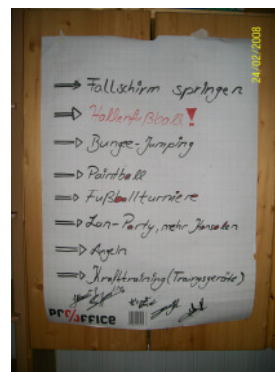 24/02/2008
⇒ Fallschirm springen
⇒ Hallenfußball!
⇒ Bungee-Jumping
⇒ Paintball
⇒ Fußballturniere
⇒ Lan-Party, mehr Konsolen
⇒ Angeln
⇒ Krafttraining (Traingsgeräte)
PROFFICE